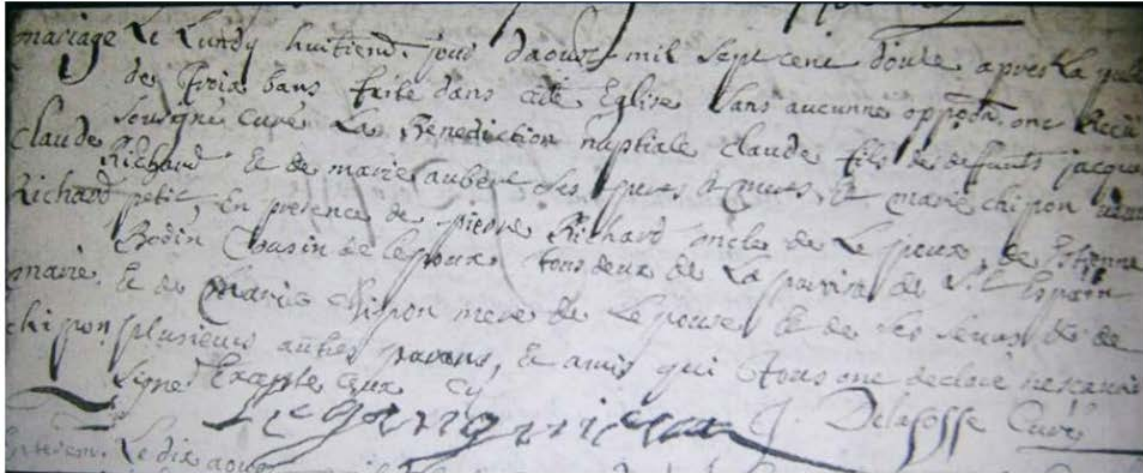 mariage Le Lundy huitiem. jour daoust mil sept cent douze apres La
de trois bans faite dans cete Eglise sans aucunne oppôon ont Reçu
Claude sousigné curé La Benediction nuptiale claude fils de deffunts jacque
Richard Richard et de marie aubert ses peres et meres, Et marie chipon
petit, En presence de pierre Richard oncle de Lepoux, de Estienne
Bodin Cousin de lepoux tous deux de La paroisse de St Espain
marie Et de Marie Chipon mere de Lepouse Et de ses de
chipon plusieurs autres parans, Et amis qui tous ont declaré nescavoir
signé Excepté ceux cy
J. Delafosse Curé
Le dix aoust